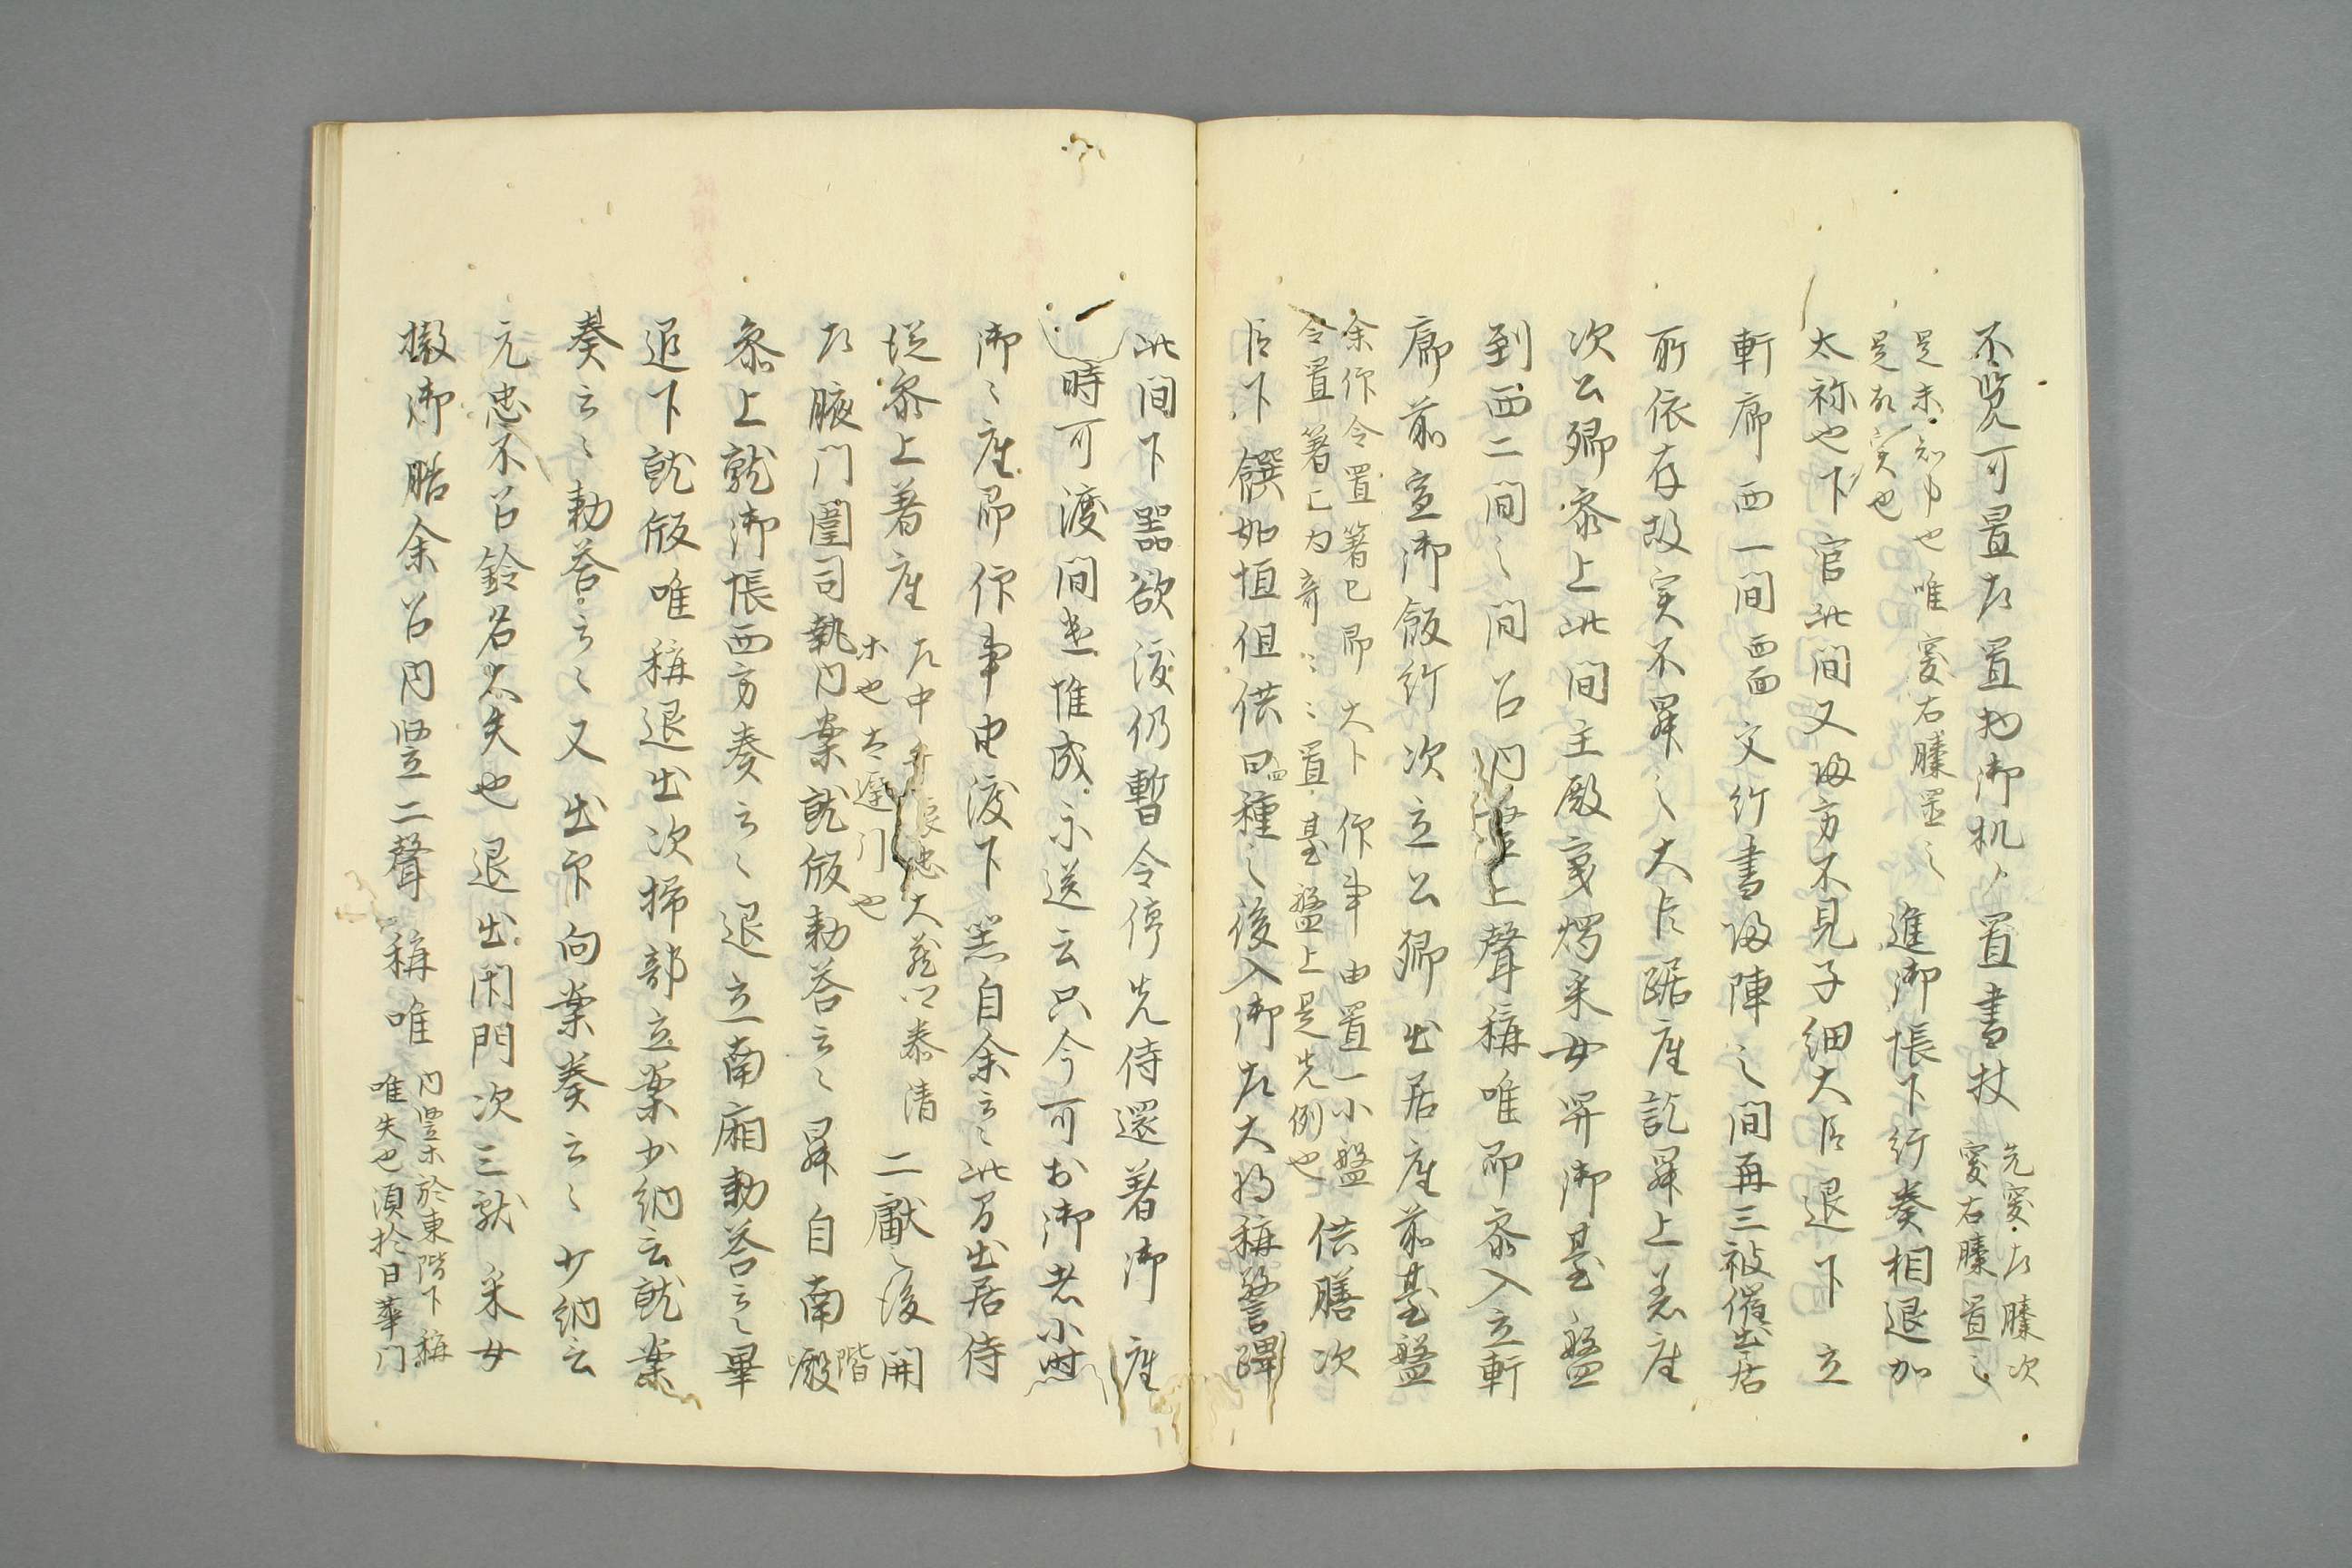 不覧可置左置物御机、置書杖
先突左膝次
突右膝置之
是未知也唯突右膝置之
是故実也
進御帳下行奏相退加
太祢也下官此間又帰方不見子細大臣退下立
軒廊西一間西面文行書帰陣之間再三被催出居
所依存故実不昇之大臣踞座訖昇上着座
次公卿参上此間主殿寮燭采女昇御臺盤
到西二間之間召内豎上聲稱唯即参入立軒
廊前宣御飯給次立公卿出居座前臺盤
余作令置箸已即大卜作事由置一小盤
令置箸已為奇〻〻置臺盤上是先例也
供膳次
臣下饌如恒但供四種之後入御左大将稱警蹕
此間下器欲渡仍暫令停先侍還着御座
一時可渡間進惟成示送云只今可出御者小時
御〻座即作事由渡下器自余云〻此間出居侍
従参上着座
左中弁 大蔵 泰清
二獻之後開
左腋門闈司執内案就版勅答云〻昇自南階殿
参上就御帳西方奏云〻退立南廂勅答云〻畢
退下就版唯稱退出次掃部立案少納言就案
奏云〻勅答云〻又出印向案奏云〻少納言
元忠不召鈴名太失也退出闭門次三献采女
撤御膳余召内豎二聲稱唯
内豎於東階下稱
唯失也須於日華门